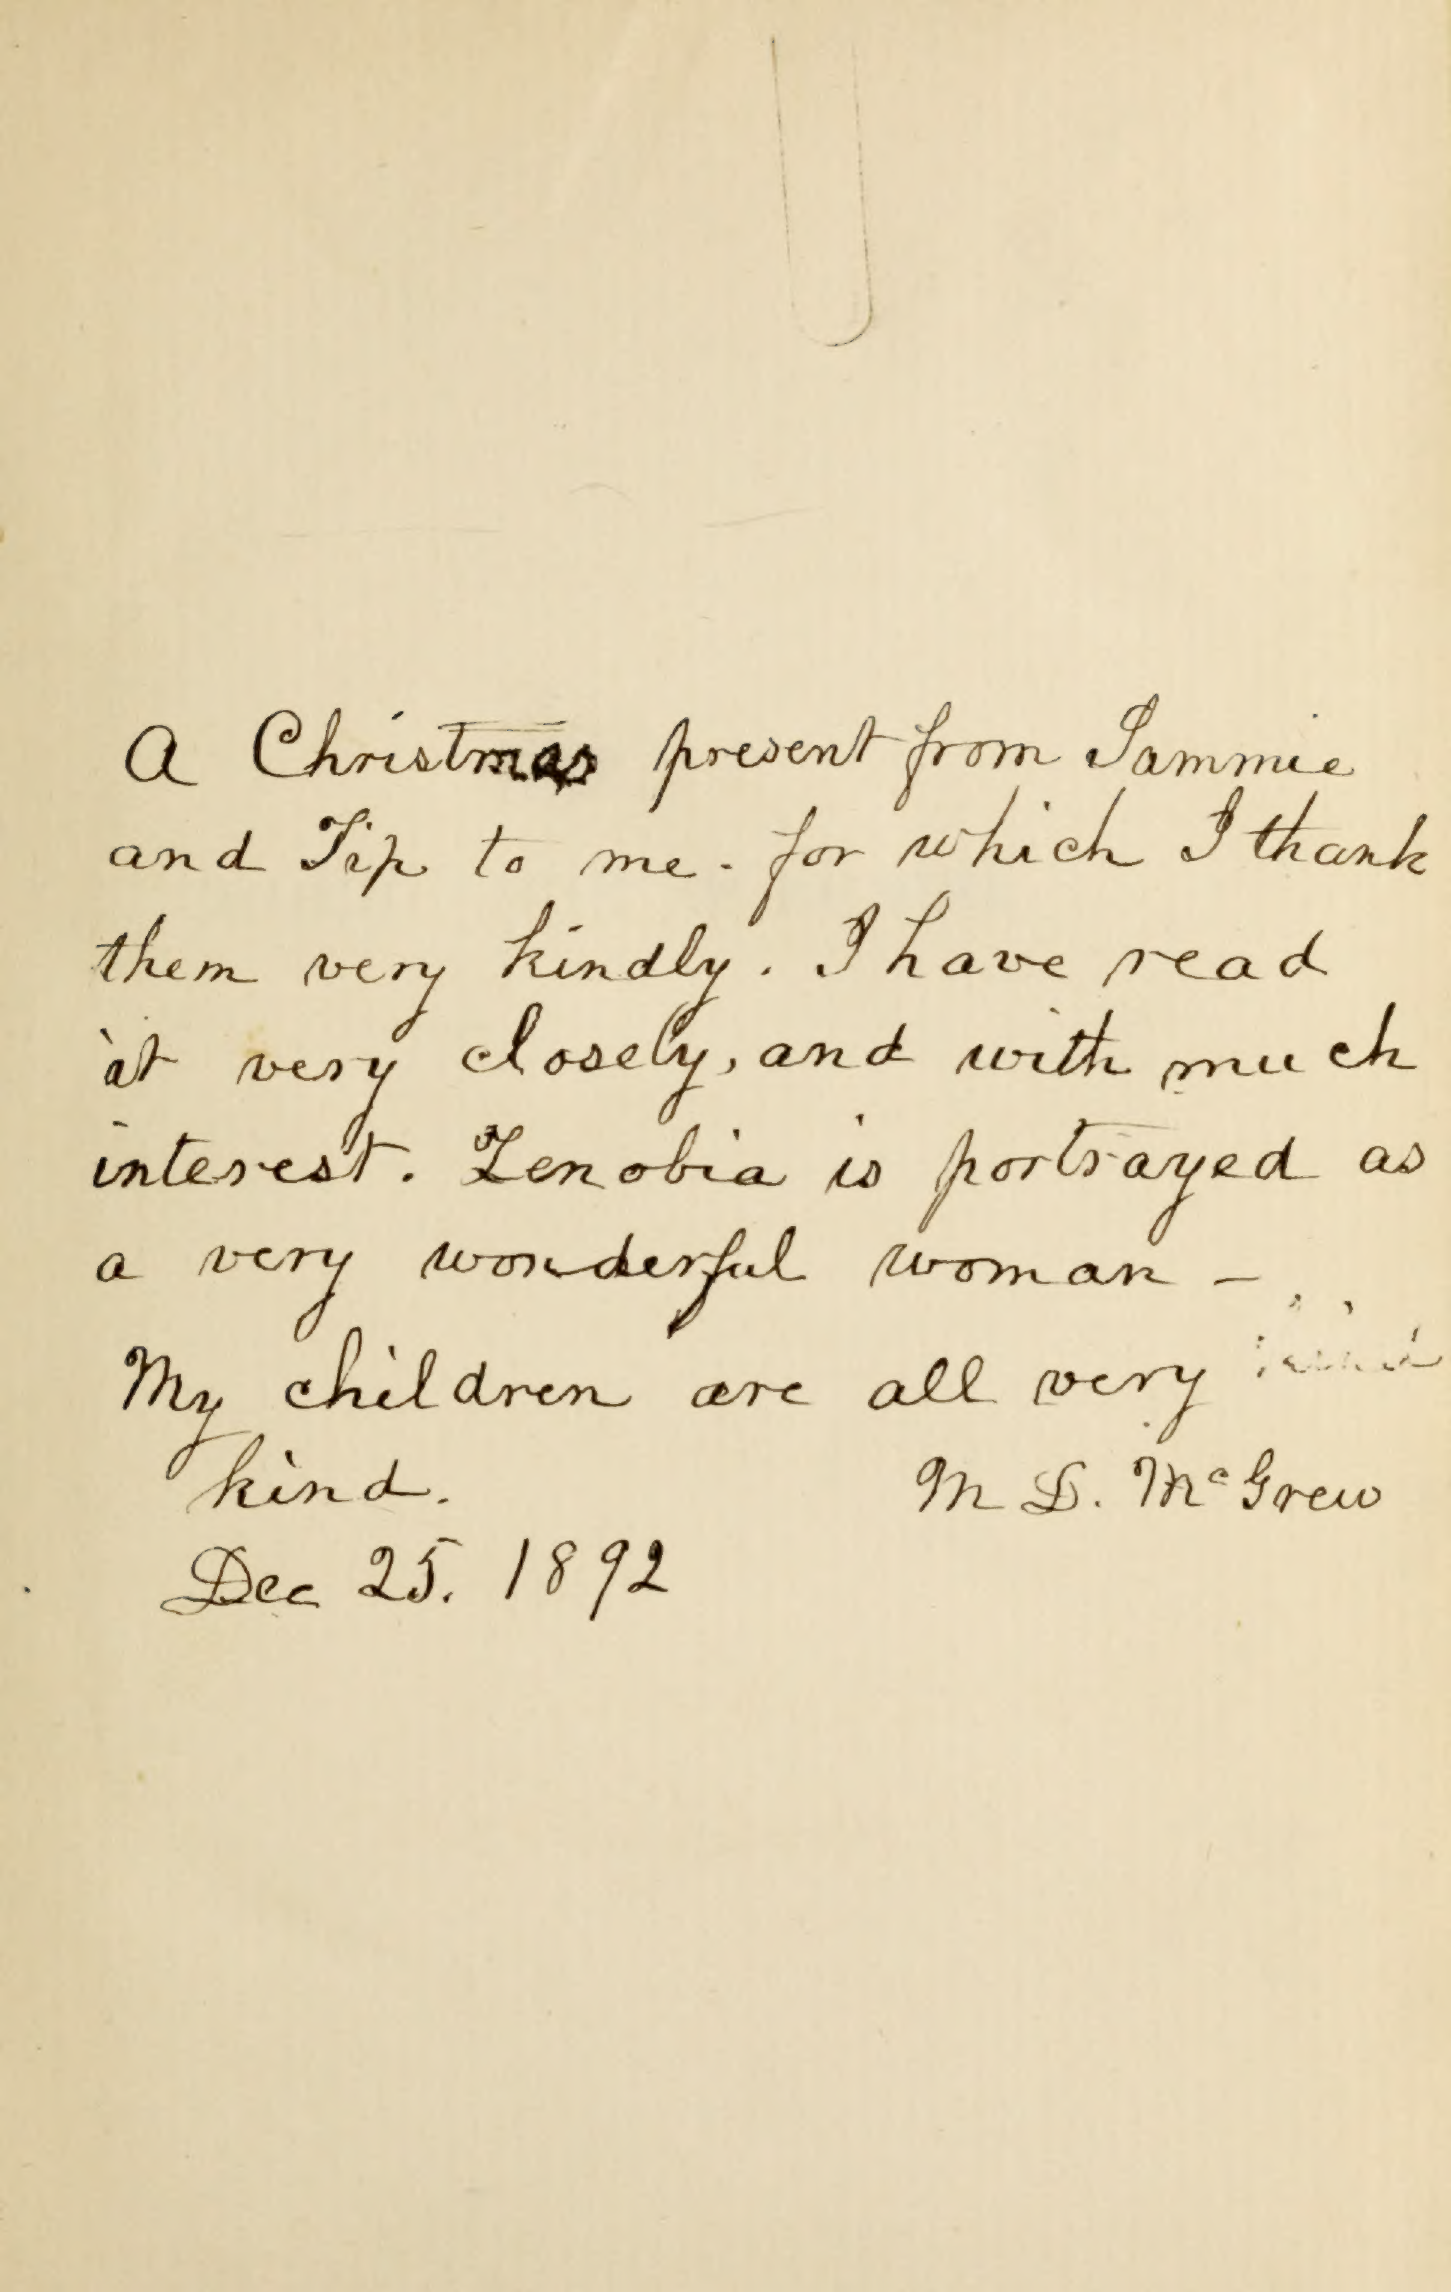 A Christmas present from Sammie
and Tip to me. for which I thank
them very kindly. I have read
it very closely, and with much
interest. Zenobia is portrayed as
a very wonderful woman —
My children are all very
kind. M S. McGrew
Dec 25. 1892